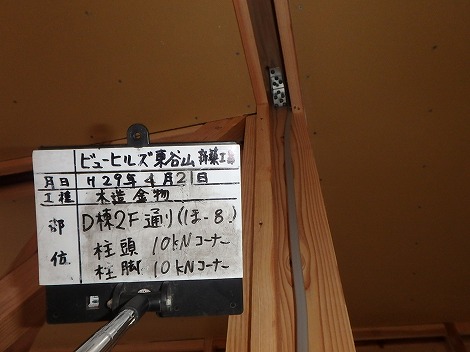 ビューヒルズ東谷山新築工事
月日 H29年4月21日
工種 木造金物
部位 D棟2F通り(ほ-8)
柱頭 10kNコーナー
柱脚 10kNコーナー